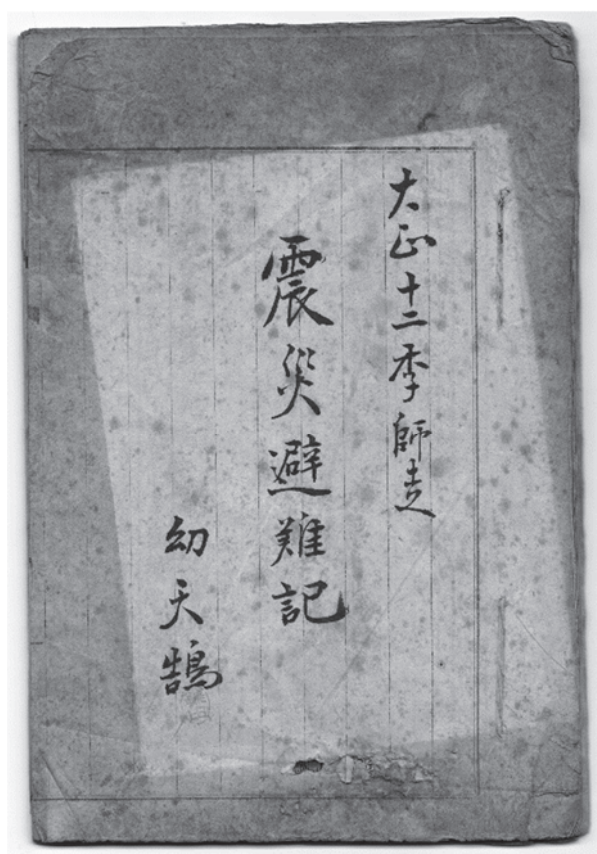 大正十二季師走
震災避難記
幼天鵠